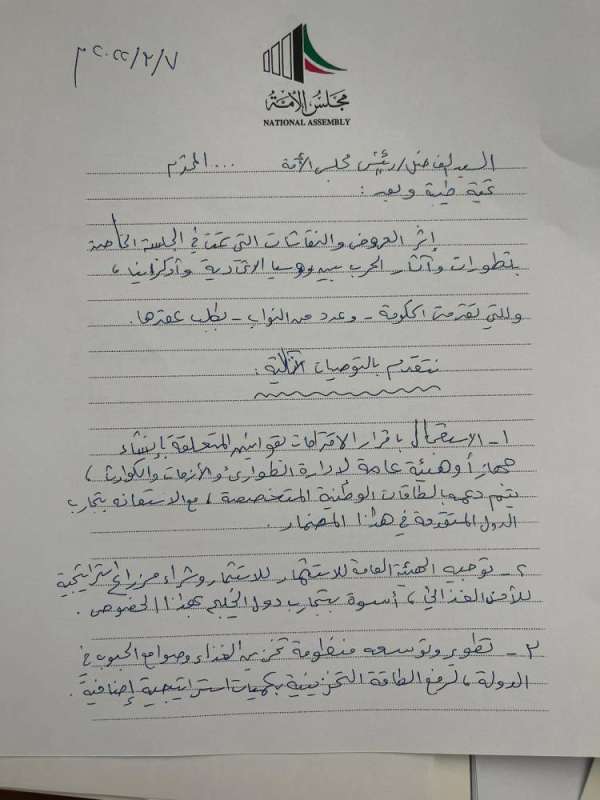 ٢٠٢٢/٣/٧ م
مجلس الأمة
NATIONAL ASSEMBLY
السيد الفاضل / رئيس مجلس الأمة ... المحترم
تحية طيبة وبعد :
إثر العروض والنقاشات التي تمت في الجلسة الخاصة
بتطورات وآثار الحرب بين روسيا الاتحادية وأوكرانيا ،
والتي تقدمت الحكومة - وعدد من النواب - بطلب عقدها .
نتقدم بالتوصيات التالية :
١ - الاستعجال بإقرار الاقتراحات بقوانين المتعلقة بإنشاء
جهاز أو هيئة عامة لإدارة الطوارئ والأزمات والكوارث ،
يتم دعمها بالطاقات الوطنية المتخصصة ، مع الاستعانة بتجارب
الدول المتقدمة في هذا المضمار .
٢ - توجيه الهيئة العامة للاستثمار للاستثمار وشراء مزارع استراتيجية
للأمن الغذائي ، أسوة بتجارب دول الخليج بهذا الخصوص .
٣ - تطوير وتوسعة منظومة تخزين الغذاء وصوامع الحبوب في
الدولة ، لرفع الطاقة التخزينية بكميات استراتيجية إضافية .